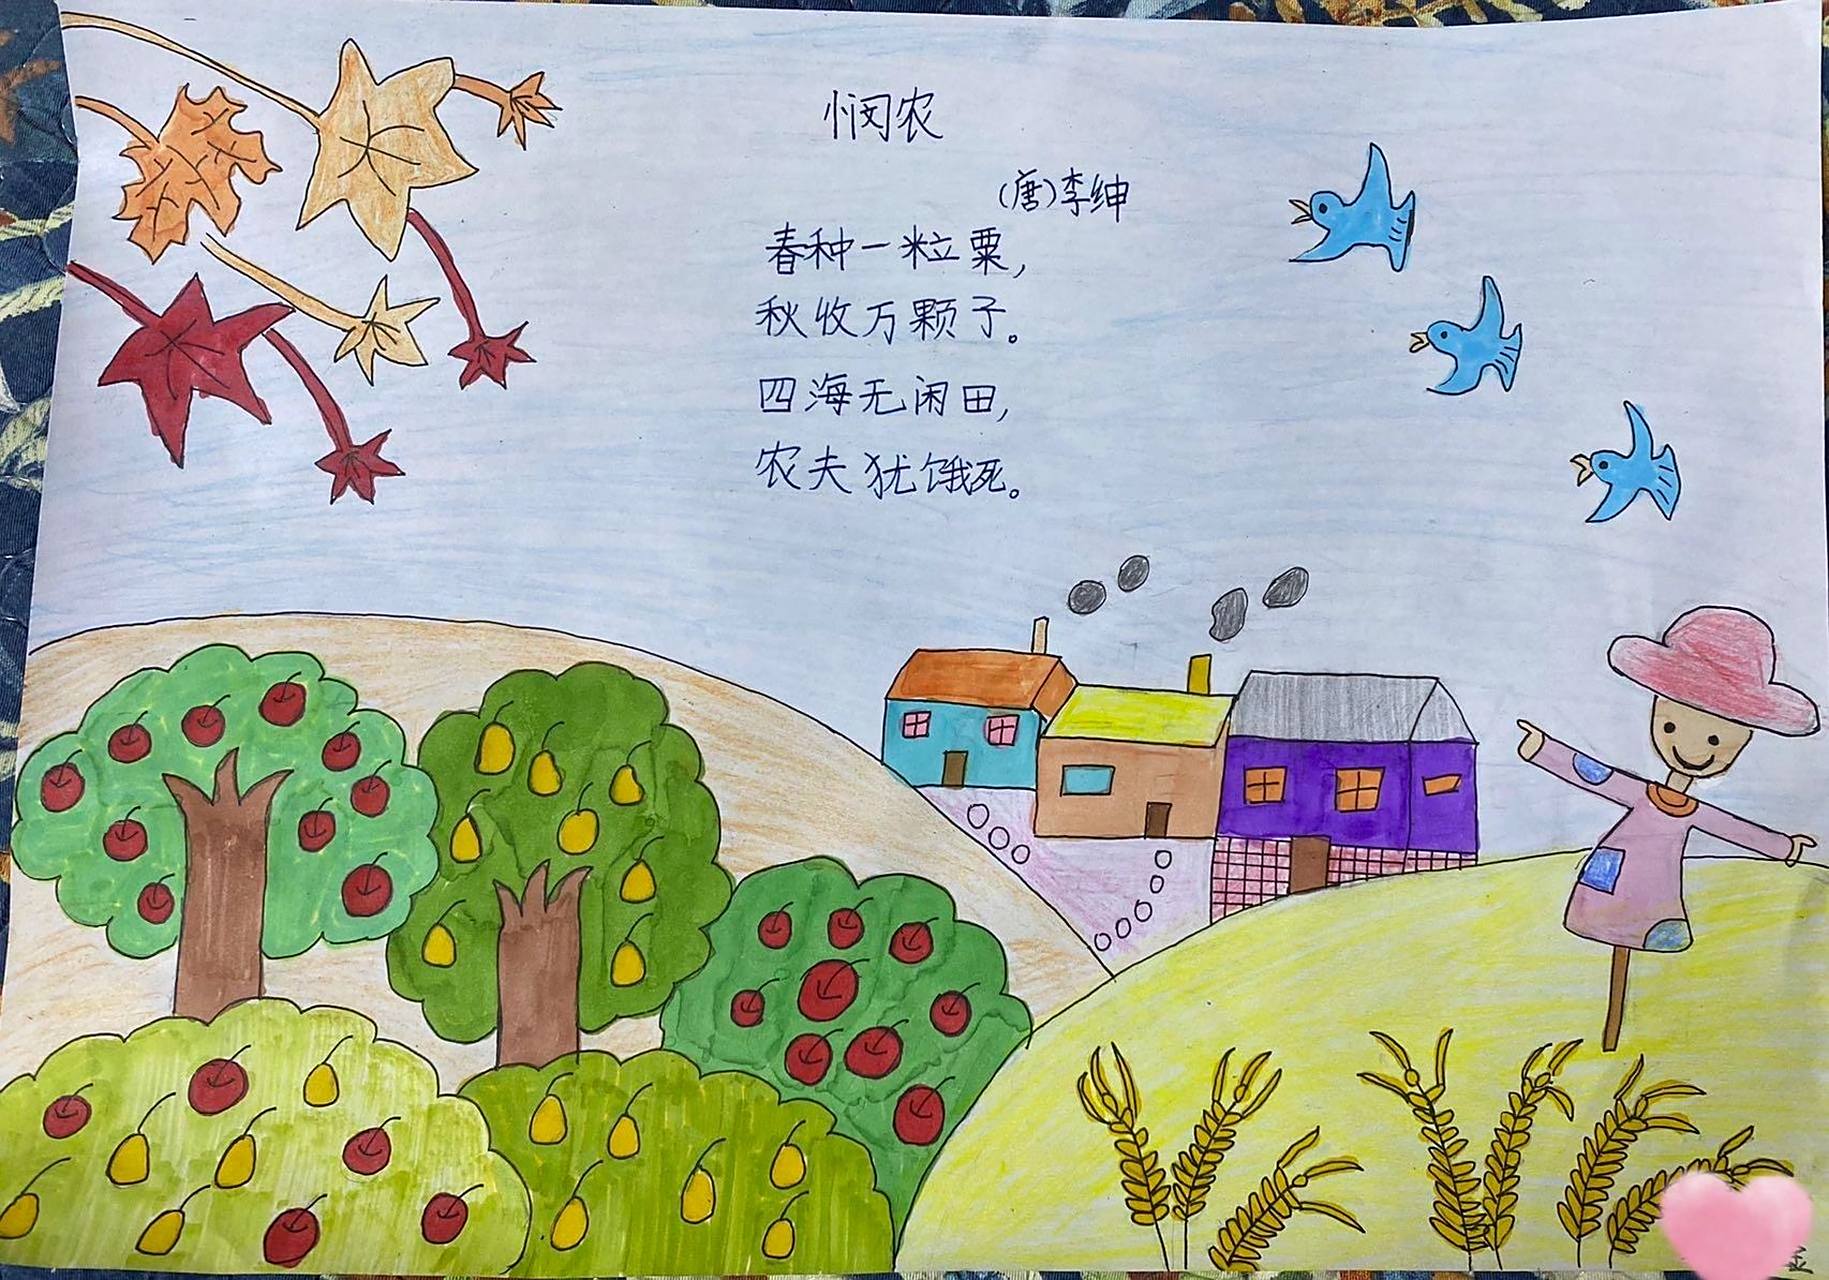 悯农
(唐)李绅
春种一粒粟,
秋收万颗子。
四海无闲田,
农夫犹饿死。